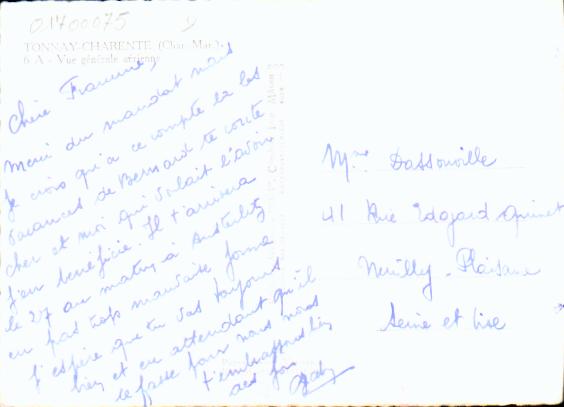 01700075
TONNAY-CHARENTE (Char. Mar.)
6 A - Vue générale aérienne
Chère Francine,
Merci du mandat mais
je crois qu'a ce compte la les
vacances de Bernard te coute
cher et moi qui volait l'avoir
j'en bénéficie. Il t'arrivera
le 27 au matin à Austerlitz
en pas trop mauvaise forme
J'espère que tu vas toujours
bien et en attendant qu'il
le fasse pour nous nous
t'embrassons bien
Gaby
Mme Dassonville
41 Rue Edgard Quinet
Neuilly-Plaisance
Seine et Oise